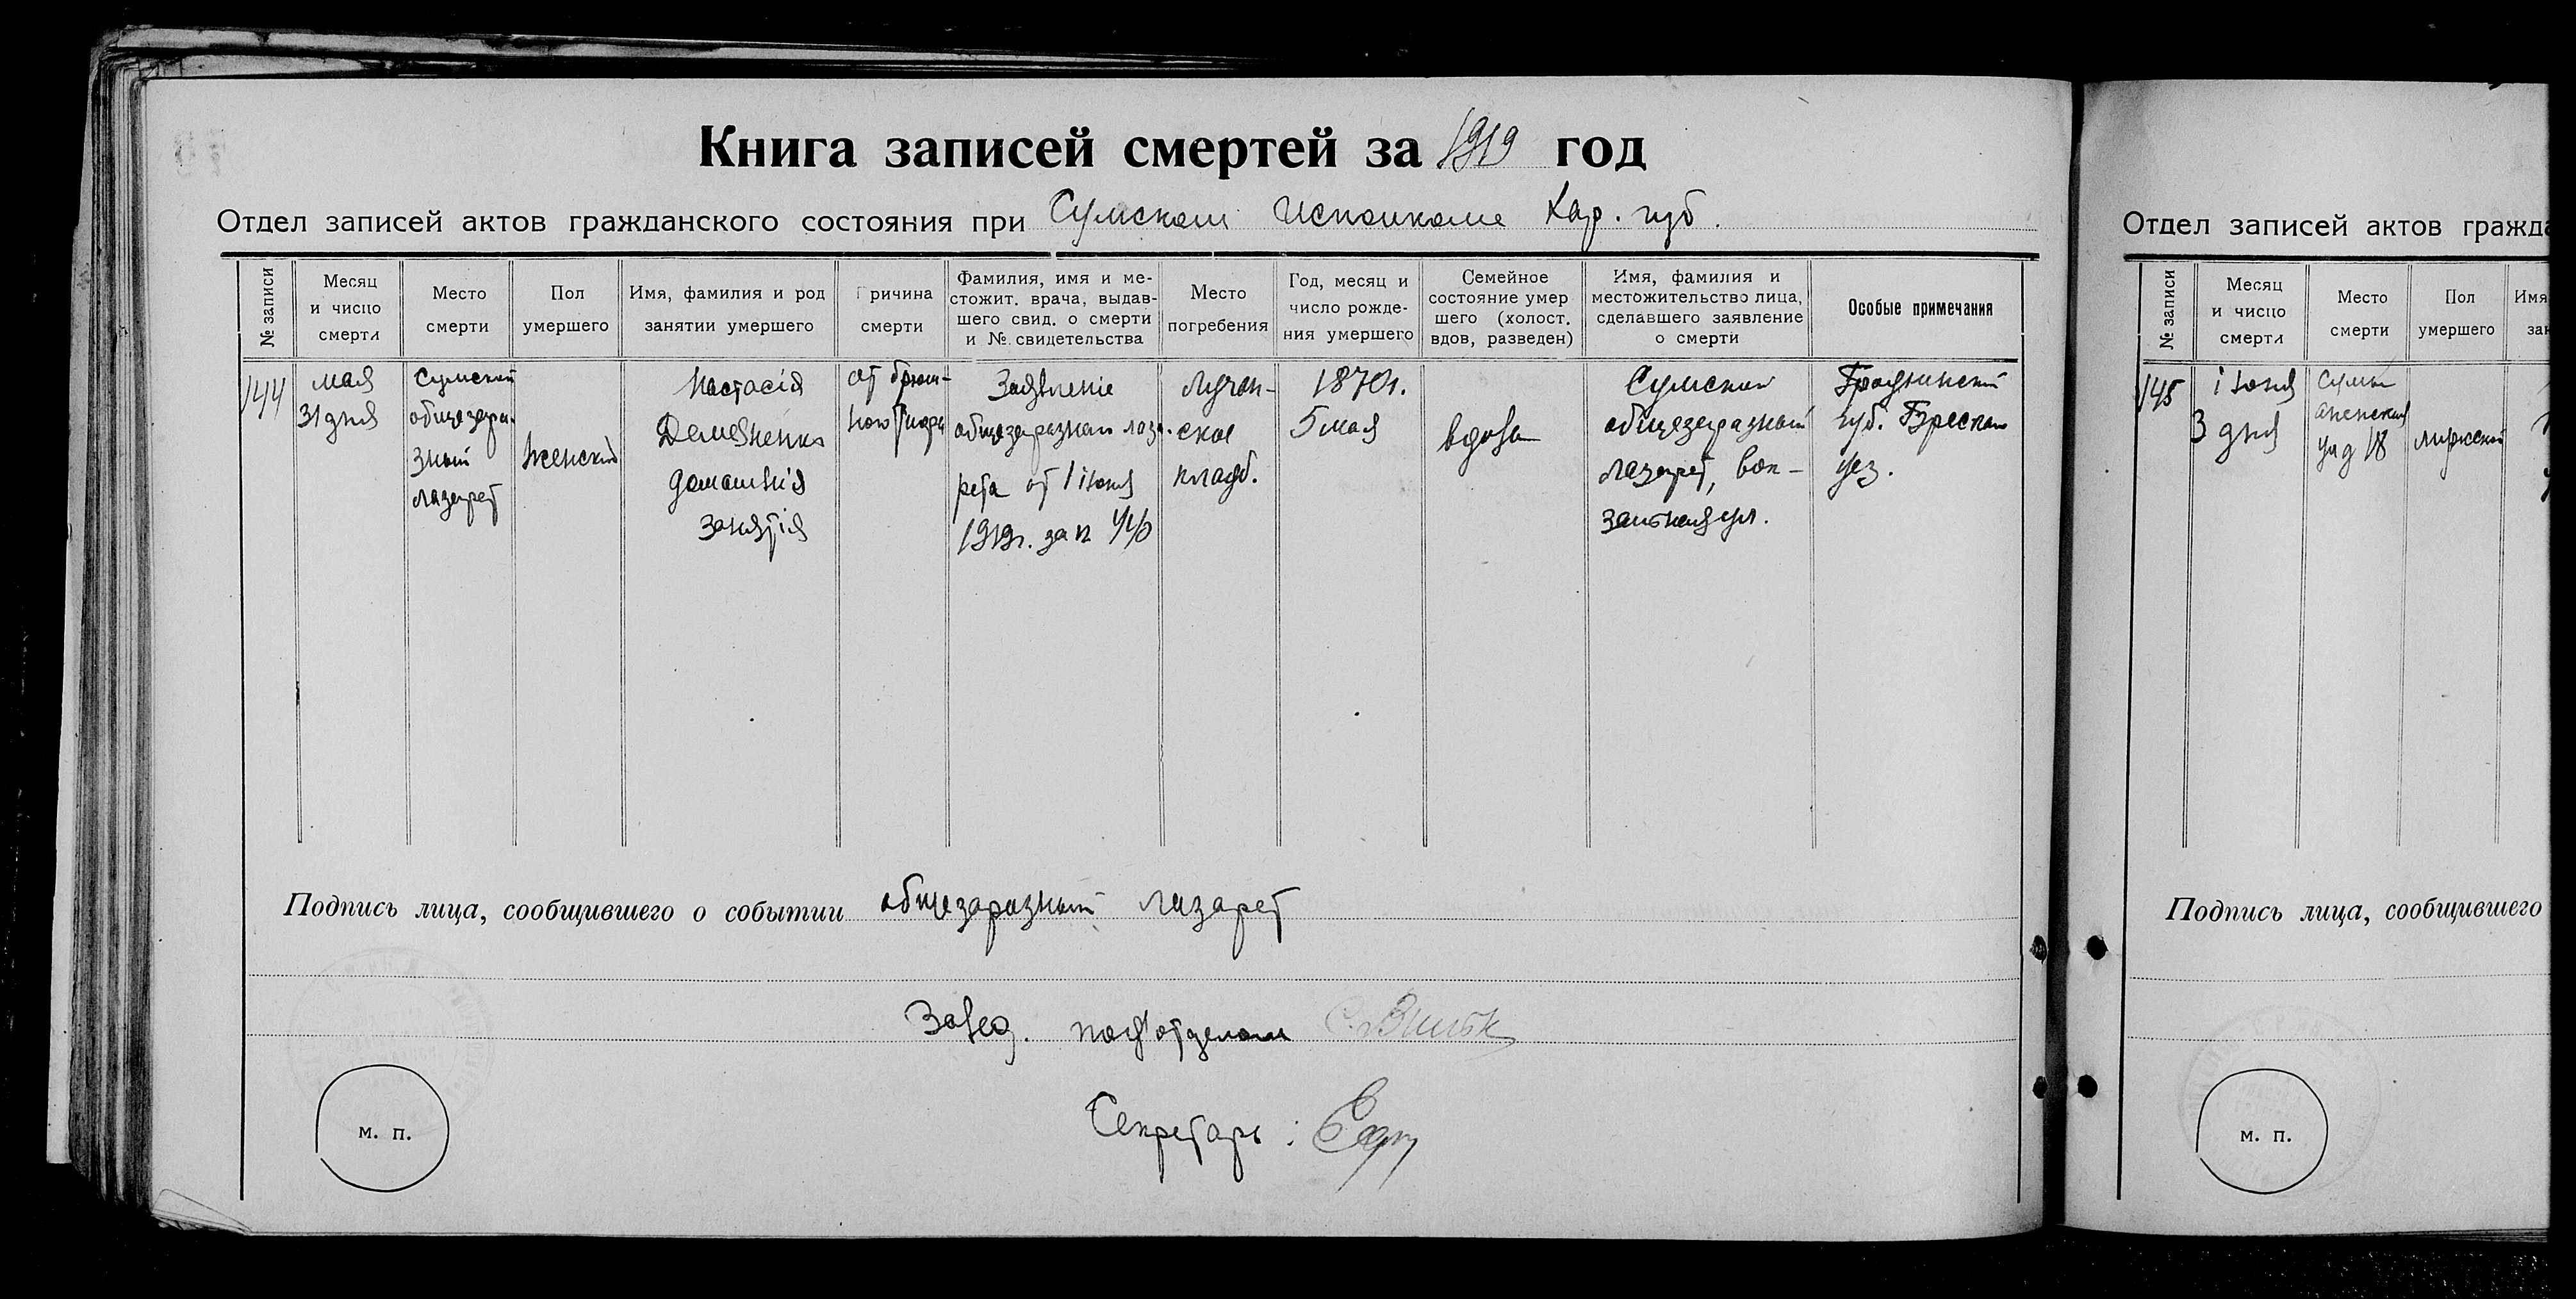 Книга записей смертей за 1919 год
Отдел записей актов гражданского состояния при Сумском Исполкоме Хар. губ.
№ записи
Месяц
и число
смерти
Место
смерти
Пол
умершего
Имя, фамилия и род
занятии умершего
Причина
смерти
Фамилия, имя и ме-
стожит. врача, выдав-
шего свид. о смерти
и №. свидетельства
Место
погребения
Год, месяц и
число рожде-
ния умершего
Семейное
состояние умер
шего (холост.
вдов, разведен)
Имя, фамилия и
местожительство лица,
сделавшего заявление
о смерти
Особые примечания
144
мая
31 дня
Сумской
общезара-
зный
лазарет
женский
Настасія
Демяненко
домашнія
занятія
от брюш-
ного тифа
Заявленіе
общезаразнаго лаза-
рета от 1 іюня
1919г. за №
Лучан-
ское
кладб.
1870г.
5 мая
вдова
Сумской
общезаразный
лазарет, вок-
зальная ул.
Гродненской
губ. Брескаго
уез.
Подпись лица, сообщившего о событии общезаразный лазарет
Завед. подотделом
Секретарь:
м. п.
Отдел записей актов гражда
№ записи
Месяц
и число
смерти
Место
смерти
Пол
умершего
Имя
зан
145
іюня
3 дня
Сумы
мужской
Подпись лица, сообщившего
м. п.